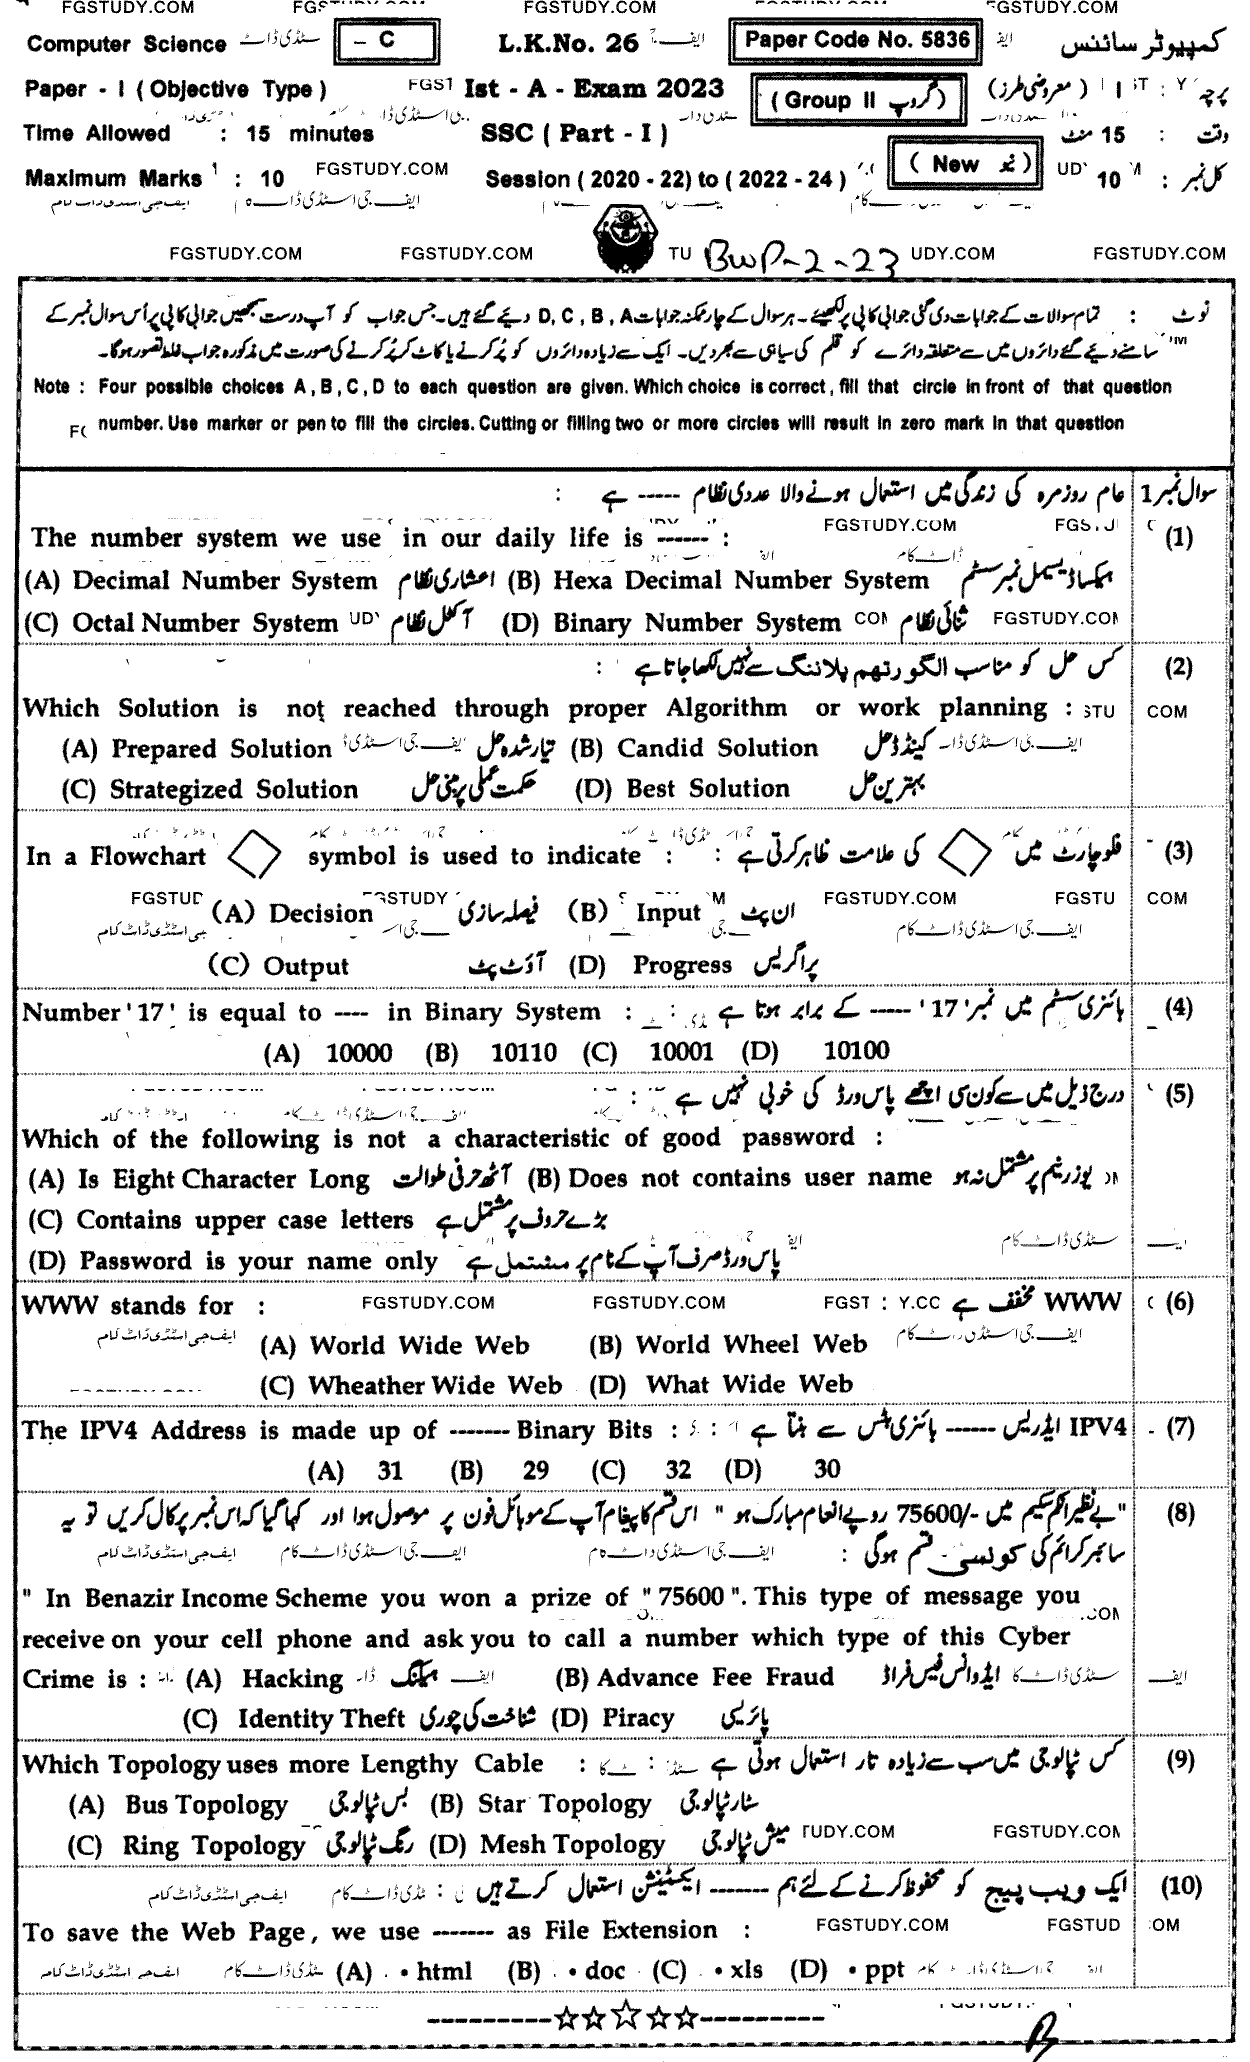 FGSTUDY.COM FGSTUDY.COM FGSTUDY.COM FGSTUDY.COM
Computer Science – C L.K.No. 26 Paper Code No. 5836 کمپیوٹر سائنس
Paper - I ( Objective Type ) Ist - A - Exam 2023 ( Group II گروپ ) پرچہ : I ( معروضی طرز )
Time Allowed : 15 minutes SSC ( Part - I ) وقت : 15 منٹ
Maximum Marks : 10 FGSTUDY.COM Session ( 2020 - 22) to ( 2022 - 24 ) ( New نیو ) کل نمبر : 10
FGSTUDY.COM FGSTUDY.COM BWP-2-23 UDY.COM FGSTUDY.COM
نوٹ : تمام سوالات کے جوابات دی گئی جوابی کاپی پر لکھیئے۔ ہر سوال کے چار ممکنہ جوابات D, C, B, A دیئے گئے ہیں۔ جس جواب کو آپ درست سمجھیں جوابی کاپی پر اُس سوال نمبر کے
سامنے دیئے گئے دائروں میں سے متعلقہ دائرے کو قلم کی سیاہی سے بھر دیں۔ ایک سے زیادہ دائروں کو پُر کرنے یا کاٹ کر پُر کرنے کی صورت میں مذکورہ جواب غلط تصور ہوگا۔
Note : Four possible choices A , B , C , D to each question are given. Which choice is correct , fill that circle in front of that question
number. Use marker or pen to fill the circles. Cutting or filling two or more circles will result in zero mark in that question
سوال نمبر 1 عام روزمرہ کی زندگی میں استعمال ہونے والا عددی نظام ----- ہے :
The number system we use in our daily life is ------ : (1)
(A) Decimal Number System اعشاری نظام (B) Hexa Decimal Number System ہیکساڈیسیمل نمبر سسٹم
(C) Octal Number System آکٹل نظام (D) Binary Number System ثنائی نظام
(2) کس حل کو مناسب الگورتھم پلاننگ سے نہیں لکھا جاتا ہے :
Which Solution is not reached through proper Algorithm or work planning :
(A) Prepared Solution تیار شدہ حل (B) Candid Solution کینڈڈ حل
(C) Strategized Solution حکمت عملی پر مبنی حل (D) Best Solution بہترین حل
In a Flowchart symbol is used to indicate : فلوچارٹ میں کی علامت ظاہر کرتی ہے : (3)
(A) Decision فیصلہ سازی (B) Input ان پٹ
(C) Output آؤٹ پٹ (D) Progress پراگریس
Number '17' is equal to ---- in Binary System : بائنری سسٹم میں نمبر '17' ----- کے برابر ہوتا ہے (4)
(A) 10000 (B) 10110 (C) 10001 (D) 10100
(5) درج ذیل میں سے کون سی اچھے پاس ورڈ کی خوبی نہیں ہے :
Which of the following is not a characteristic of good password :
(A) Is Eight Character Long آٹھ حرفی طوالت (B) Does not contains user name یوزر نیم پر مشتمل نہ ہو
(C) Contains upper case letters بڑے حروف پر مشتمل ہے
(D) Password is your name only پاس ورڈ صرف آپ کے نام پر مشتمل ہے
WWW stands for : FGSTUDY.COM FGSTUDY.COM WWW مخفف ہے (6)
(A) World Wide Web (B) World Wheel Web
(C) Wheather Wide Web (D) What Wide Web
The IPV4 Address is made up of ------- Binary Bits : IPV4 ایڈریس ------ بائنری بٹس سے بنتا ہے (7)
(A) 31 (B) 29 (C) 32 (D) 30
(8) "بے نظیر انکم سکیم میں -/75600 روپے انعام مبارک ہو " اس قسم کا پیغام آپ کے موبائل فون پر موصول ہوا اور کہا گیا کہ اس نمبر پر کال کریں تو یہ
سائبر کرائم کی کونسی قسم ہوگی :
" In Benazir Income Scheme you won a prize of " 75600 ". This type of message you
receive on your cell phone and ask you to call a number which type of this Cyber
Crime is : (A) Hacking ہیکنگ (B) Advance Fee Fraud ایڈوانس فیس فراڈ
(C) Identity Theft شناخت کی چوری (D) Piracy پائریسی
Which Topology uses more Lengthy Cable : کس ٹپالوجی میں سب سے زیادہ تار استعمال ہوتی ہے (9)
(A) Bus Topology بس ٹپالوجی (B) Star Topology سٹار ٹپالوجی
(C) Ring Topology رنگ ٹپالوجی (D) Mesh Topology میش ٹپالوجی
(10) ایک ویب پیج کو محفوظ کرنے کے لئے ہم ------- ایکسٹینشن استعمال کرتے ہیں :
To save the Web Page , we use ------- as File Extension : FGSTUDY.COM
(A) .html (B) .doc (C) .xls (D) .ppt
---------☆☆☆☆☆---------